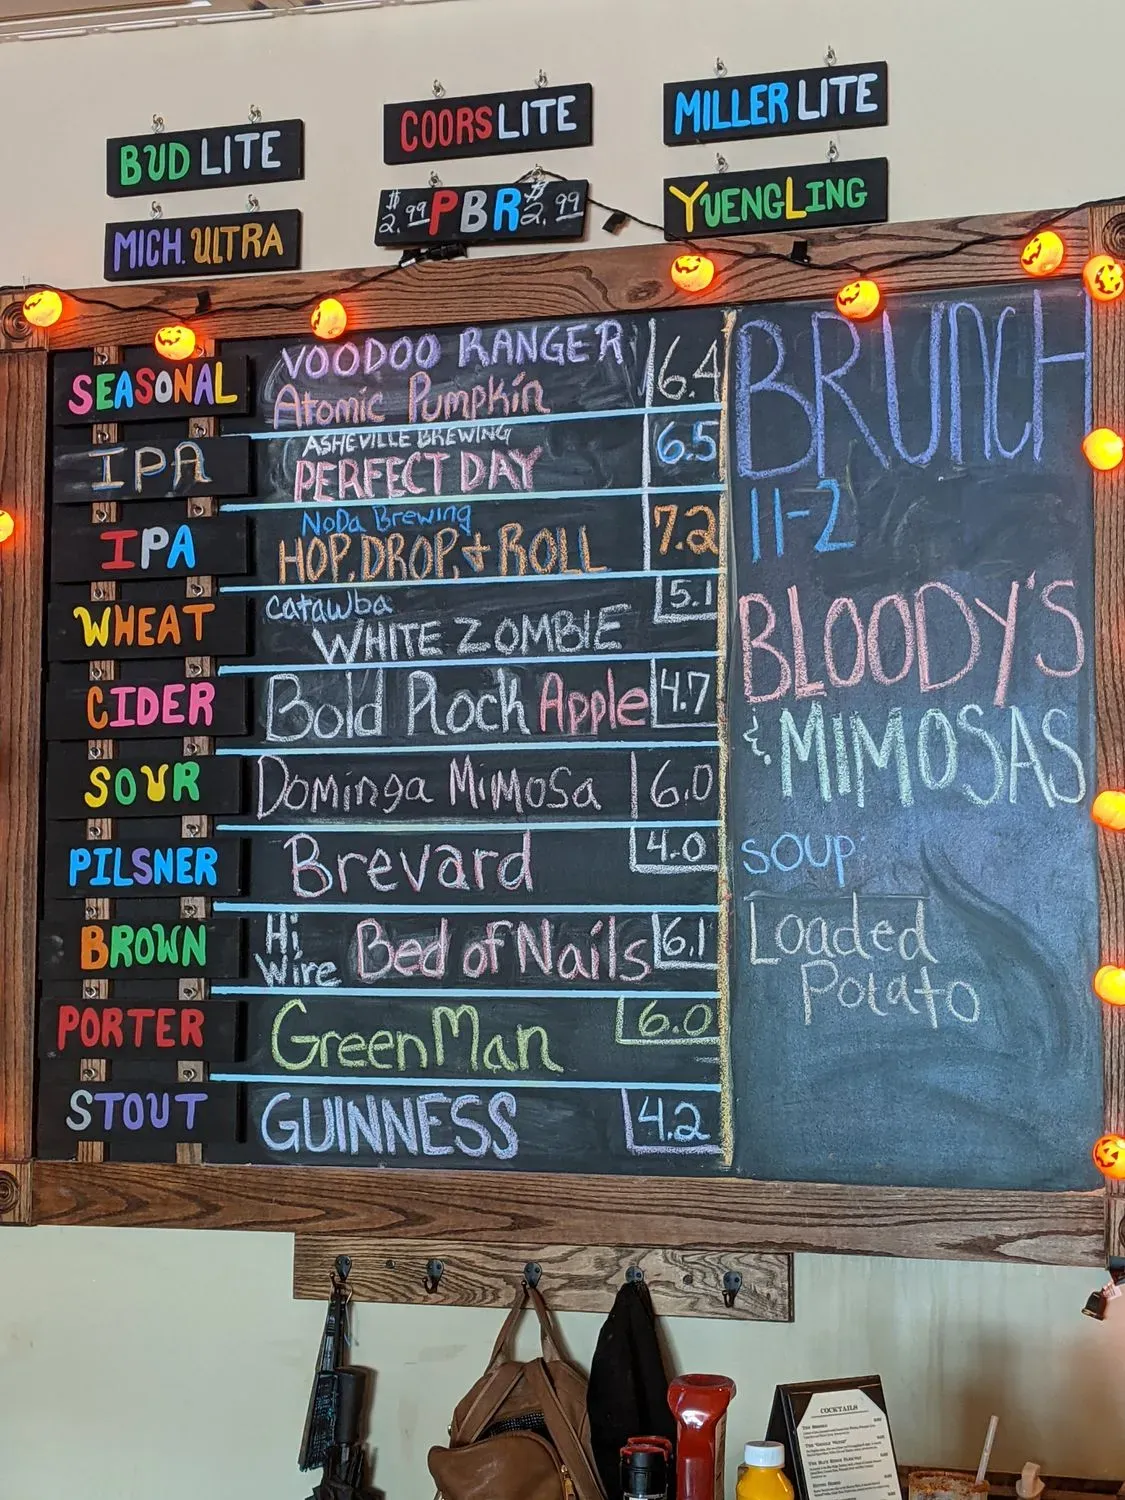 BUD LITE
COORS LITE
MILLER LITE
MICH. ULTRA
$2.99 PBR $2.99
YUENGLING
SEASONAL
VOODOO RANGER
Atomic Pumpkin
6.4
IPA
ASHEVILLE BREWING
PERFECT DAY
6.5
IPA
NoDa Brewing
HOP, DROP, + ROLL
7.2
WHEAT
Catawba
WHITE ZOMBIE
5.1
CIDER
Bold Rock Apple
4.7
SOUR
Dominga Mimosa
6.0
PILSNER
Brevard
4.0
BROWN
Hi Wire
Bed of Nails
6.1
PORTER
Green Man
6.0
STOUT
GUINNESS
4.2
BRUNCH
11-2
BLOODY'S
& MIMOSAS
SOUP
Loaded
Potato
COCKTAILS